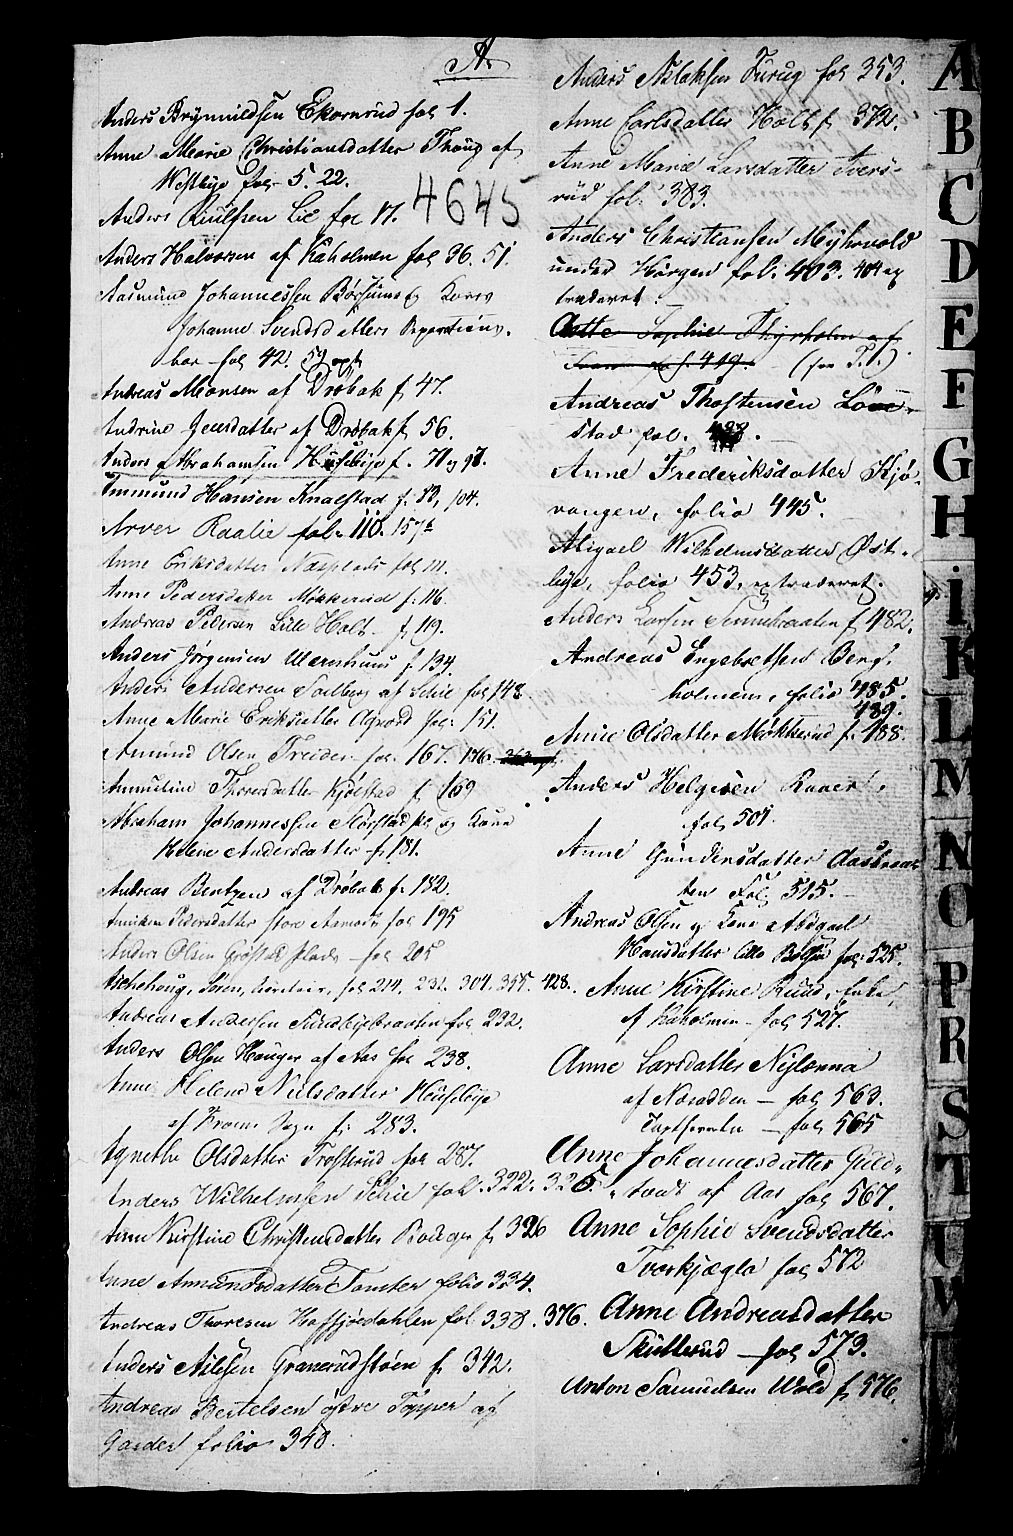 A.
Anders Brynnildsen Ekornrud fol 1.
Anne Marie Christiansdatter Thoug af
Westbye fol. 5. 22.
4645
Anders fol 17.
Anders Halvorsen af Kaholmen fol 36. 51.
Aasmund Johannessen og Kones
Johanne Svendsdatters Reparations
fol 42. 59
Andreas Monsen af Drøbak f 47.
Andrine Jensdatter af Drøbak f 56.
Anders Abrahamsen Huusebye f. 71 og 97.
Ammund Hansen Knalstad f. 104.
Arver Raalie fol. 110. 157
Anne Eriksdatter fol 111.
Anne Pedersdatter Mokkerud f. 116.
Andreas Pedersen Lille Holt f. 119.
Anders Jørgensen f 134
Anders Andersen Solberg af Schie fol 148
Anne Marie Eriksdatter fol: 151.
Amund Olsen Treider fol. 167. 176.
Thoresdatter Kjølstad f 169
Abraham Johannessen og Kone
Helene Andersdatter f. 181.
Andreas Bentzen af Drøbak f. 182.
Anniken Pedersdatter store fol 195
Anders Olsen Grøstad Plads fol 205
Aschehoug, Søren, fol 214. 231. 304. 355. 428.
Andreas Andersen Sundbybraaten fol 232.
Anders Olsen Hauger af Aas fol 238.
Anne Helene Nielsdatter Huusebye
af Krogn Sogn f: 283.
Agnethe Olsdatter Trosterud fol 287.
Anders Wilhelmsen Schie fol. 322. 325.
Anne Kirstine Christensdatter f 326
Anne Amundsdatter Tomter folio 334.
Andreas Thoresen Kaffjosdahlen fol 338. 376.
Anders Nilsen Granerudstøen f. 342.
Andreas Bertelsen østre Topper af
Garder folio 348.
Anders Aslaksen fol 353.
Anne Carlsdatter Holt f 372.
Anne Marie Larsdatter Ivers-
rud fol: 383.
Anders Christiansen Myhrvold
under Horgen fol. 403. 404 ex
traderet.
Sophie Thyrholm af
f. 419. (see T.)
Andreas Thostensen Löve-
stad fol. 428.
Anne Frederiksdatter Kjø-
vangen, folio 445.
Abigael Wilhelmsdatter Øst-
bye, folio 453, extraderet.
Anders Larsen f 482.
Andreas Engebretsen Berg-
holmen, folio 485.
489.
Anne Olsdatter Mokkerud f. 488.
Anders Helgesen Raaer
fol 501.
Anne Gundersdatter Aasbraa-
ten Fol 515.
Andreas Olsen og Kone Abigael
Hansdatter lille fol: 525.
Anne Kirstine Ruud, Enke
af Kaholmen fol 527.
Anne Larsdatter
af Næsodden fol 563.
fol 565
Anne Johannesdatter Guld-
af Aas fol 567.
Anne Sophie Svendsdatter
Tverkjægla fol 572
Anne Andreasdatter
Skullerud fol 573.
Anton Samuelsen Wold f 576.
A
B
C
D
E
F
G
H
I
K
L
M
N
O
P
R
S
T
U
W